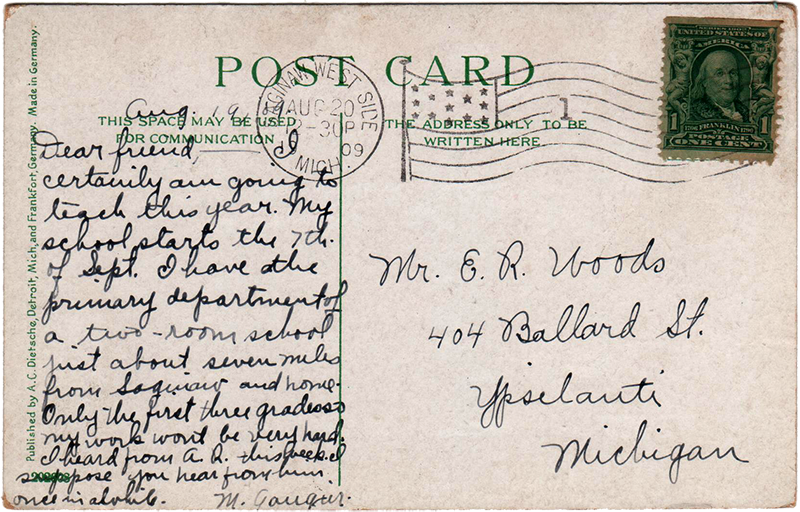 POST CARD
THIS SPACE MAY BE USED
FOR COMMUNICATION
THE ADDRESS ONLY TO BE
WRITTEN HERE
SAGINAW, WEST SIDE
AUG 20
-30P
09
MICH.
1
SERIES 1902
UNITED STATES OF
AMERICA
FRANKLIN
POSTAGE
1 ONE CENT 1
Aug. 19,
Dear friend,
I
certainly am going to
teach this year. My
school starts the 7th.
of Sept. I have the
primary department of
a two-room school
just about seven miles
from Saginaw and home.
Only the first three grades so
my work wont be very hard.
I heard from A. R. this week. I
suppose you hear from him
once in awhile.
M. Gougur.
Mr. E. R. Woods
404 Ballard St.
Ypselanti
Michigan
Published by A. C. Dietsche, Detroit, Mich, and Frankfort, Germany. Made in Germany.